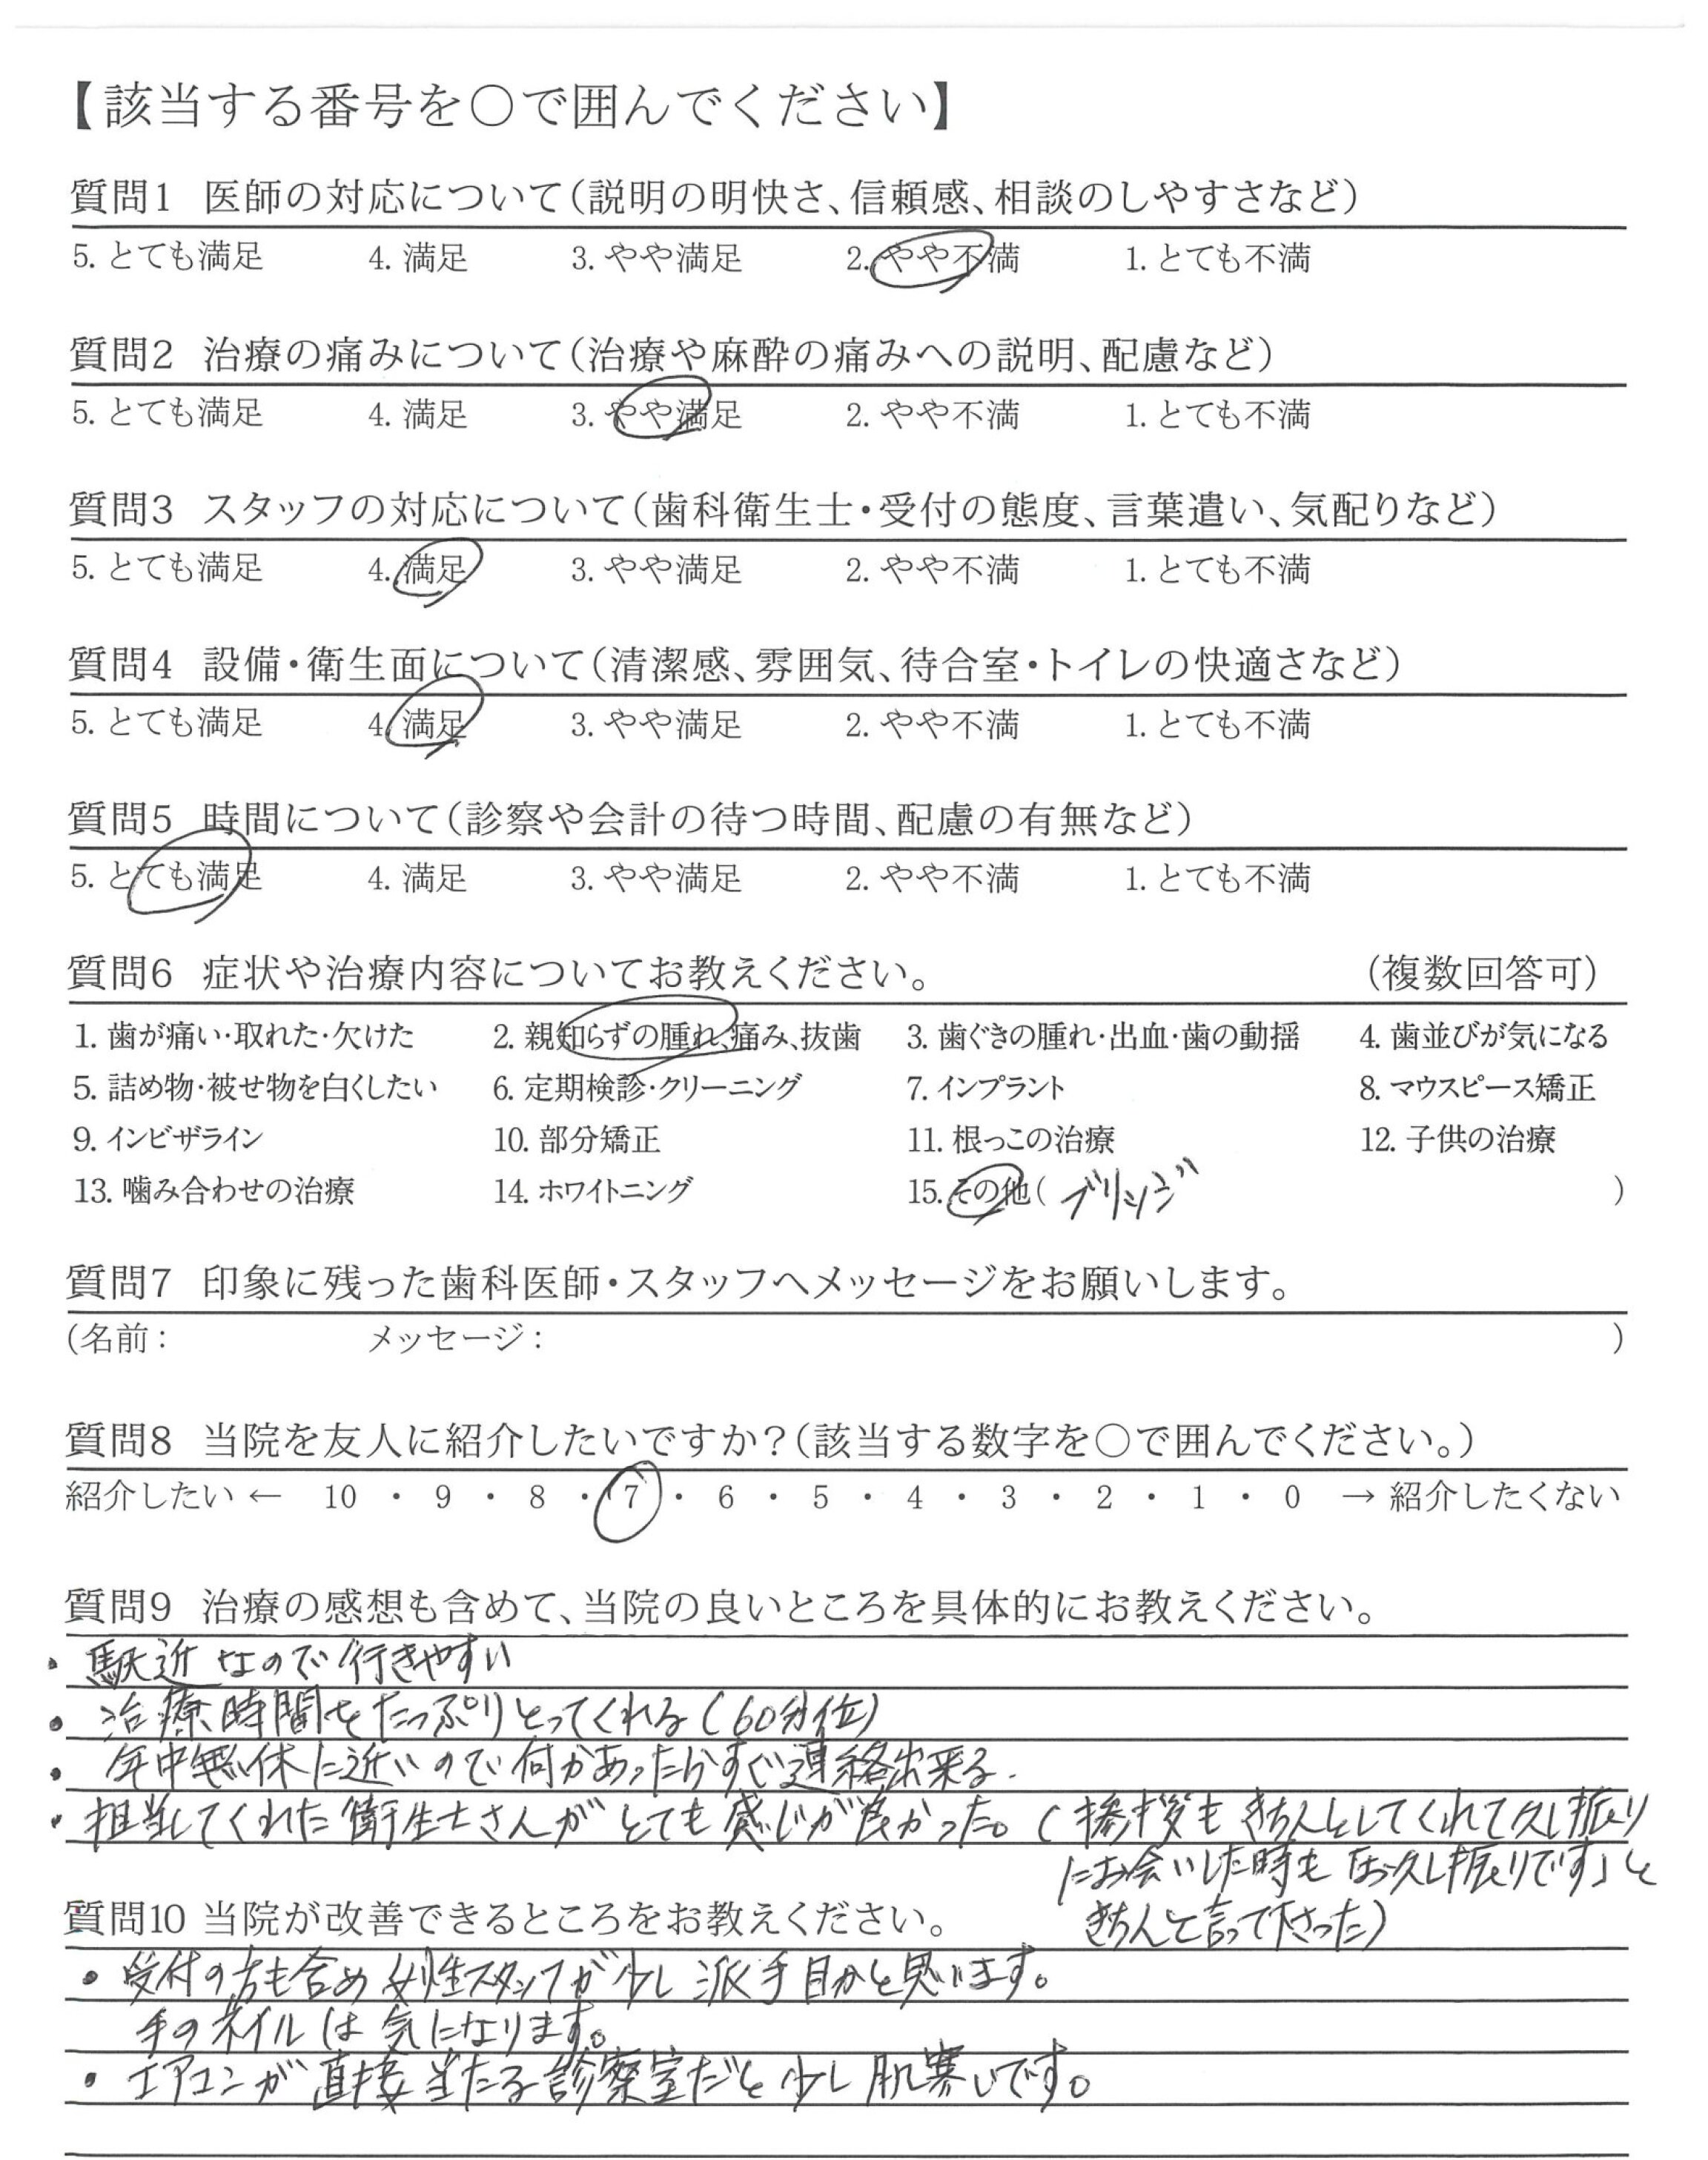 【該当する番号を○で囲んでください】
質問1 医師の対応について(説明の明快さ、信頼感、相談のしやすさなど)
5. とても満足 4. 満足 3. やや満足 2. やや不満 1. とても不満
質問2 治療の痛みについて(治療や麻酔の痛みへの説明、配慮など)
5. とても満足 4. 満足 3. やや満足 2. やや不満 1. とても不満
質問3 スタッフの対応について(歯科衛生士・受付の態度、言葉遣い、気配りなど)
5. とても満足 4. 満足 3. やや満足 2. やや不満 1. とても不満
質問4 設備・衛生面について(清潔感、雰囲気、待合室・トイレの快適さなど)
5. とても満足 4. 満足 3. やや満足 2. やや不満 1. とても不満
質問5 時間について(診察や会計の待つ時間、配慮の有無など)
5. とても満足 4. 満足 3. やや満足 2. やや不満 1. とても不満
質問6 症状や治療内容についてお教えください。 (複数回答可)
1. 歯が痛い・取れた・欠けた 2. 親知らずの腫れ、痛み、抜歯 3. 歯ぐきの腫れ・出血・歯の動揺 4. 歯並びが気になる
5. 詰め物・被せ物を白くしたい 6. 定期検診・クリーニング 7. インプラント 8. マウスピース矯正
9. インビザライン 10. 部分矯正 11. 根っこの治療 12. 子供の治療
13. 噛み合わせの治療 14. ホワイトニング 15. その他( ブリッジ )
質問7 印象に残った歯科医師・スタッフへメッセージをお願いします。
(名前: メッセージ: )
質問8 当院を友人に紹介したいですか?(該当する数字を○で囲んでください。)
紹介したい ← 10 ・ 9 ・ 8 ・ 7 ・ 6 ・ 5 ・ 4 ・ 3 ・ 2 ・ 1 ・ 0 → 紹介したくない
質問9 治療の感想も含めて、当院の良いところを具体的にお教えください。
・駅近なので行きやすい
・治療時間をたっぷりとってくれる(60分位)
・年中無休に近いので何かあったらすぐ連絡出来る.
・担当してくれた衛生士さんがとても感じが良かった。(挨拶もきちんとしてくれて久し振り
にお会いした時も「お久し振りです」と
きちんと言って下さった)
質問10 当院が改善できるところをお教えください。
・受付の方も含め女性スタッフが少し派手目かと思います。
手のネイルは気になります。
・エアコンが直接当たる診察室だと少し肌寒いです。